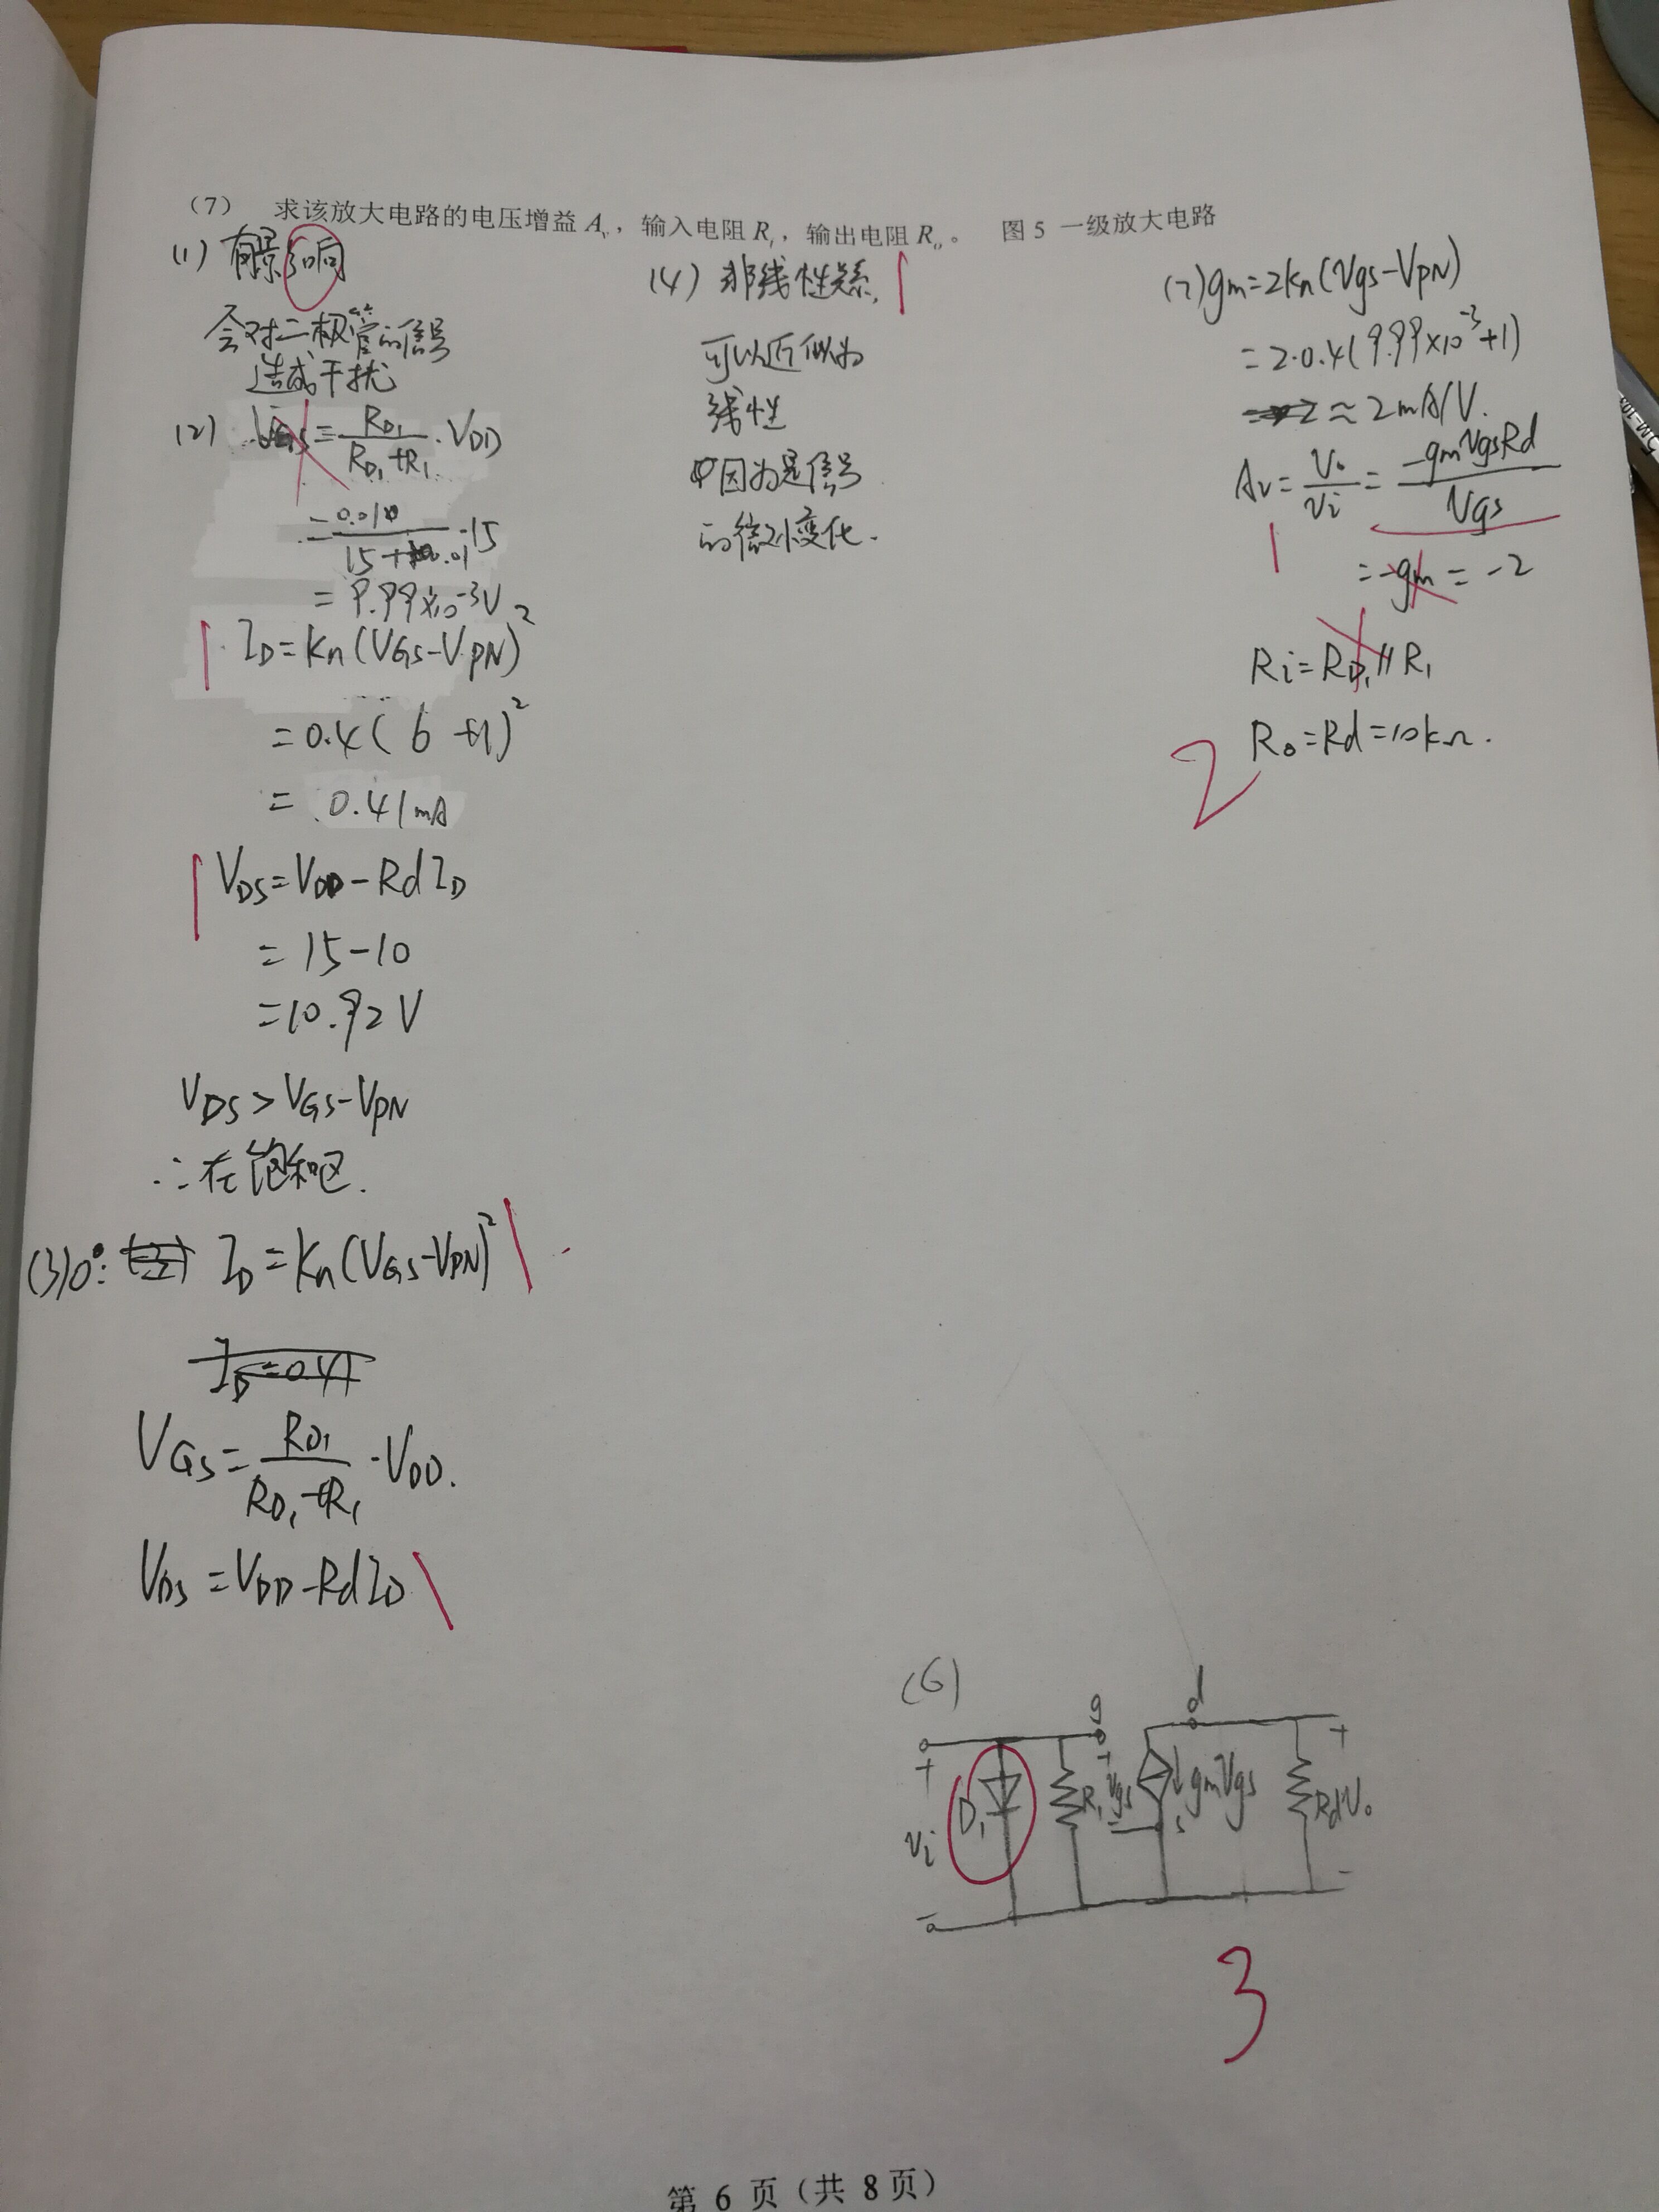 (7) 求该放大电路的电压增益 Av，输入电阻 Ri，输出电阻 Ro。 图5 一级放大电路
(1) 有影响
会对二极管的信号
造成干扰
(2) VGS=RD1/(RD1+R1)·VDD
=0.010/(15+0.01)·15
=9.99×10⁻³V
ID=Kn(VGS-VPN)²
=0.4(6+1)²
=0.41mA
VDS=VDD-RdID
=15-10
=10.92V
VDS>VGS-VPN
∴在饱和区.
(3)Q: ID=Kn(VGS-VPN)²
ID=0.41
VGS=RD1/(RD1+R1)·VDD.
VDS=VDD-RdID
(4) 非线性关系,
可以近似为
线性
因为是信号
的微小变化.
(7) gm=2kn(Vgs-VPN)
=2·0.4(9.99×10⁻³+1)
≈2mA/V.
Av=Vo/Vi=-gmVgsRd/Vgs
1
=-gm=-2
Ri=RD1//R1
Ro=Rd=10kΩ.
2
(6)
g
d
+
+
+
D1
R1
Vgs
gmVgs
Rd
Vo
Vi
-
s
-
-
3
第 6 页（共 8 页）